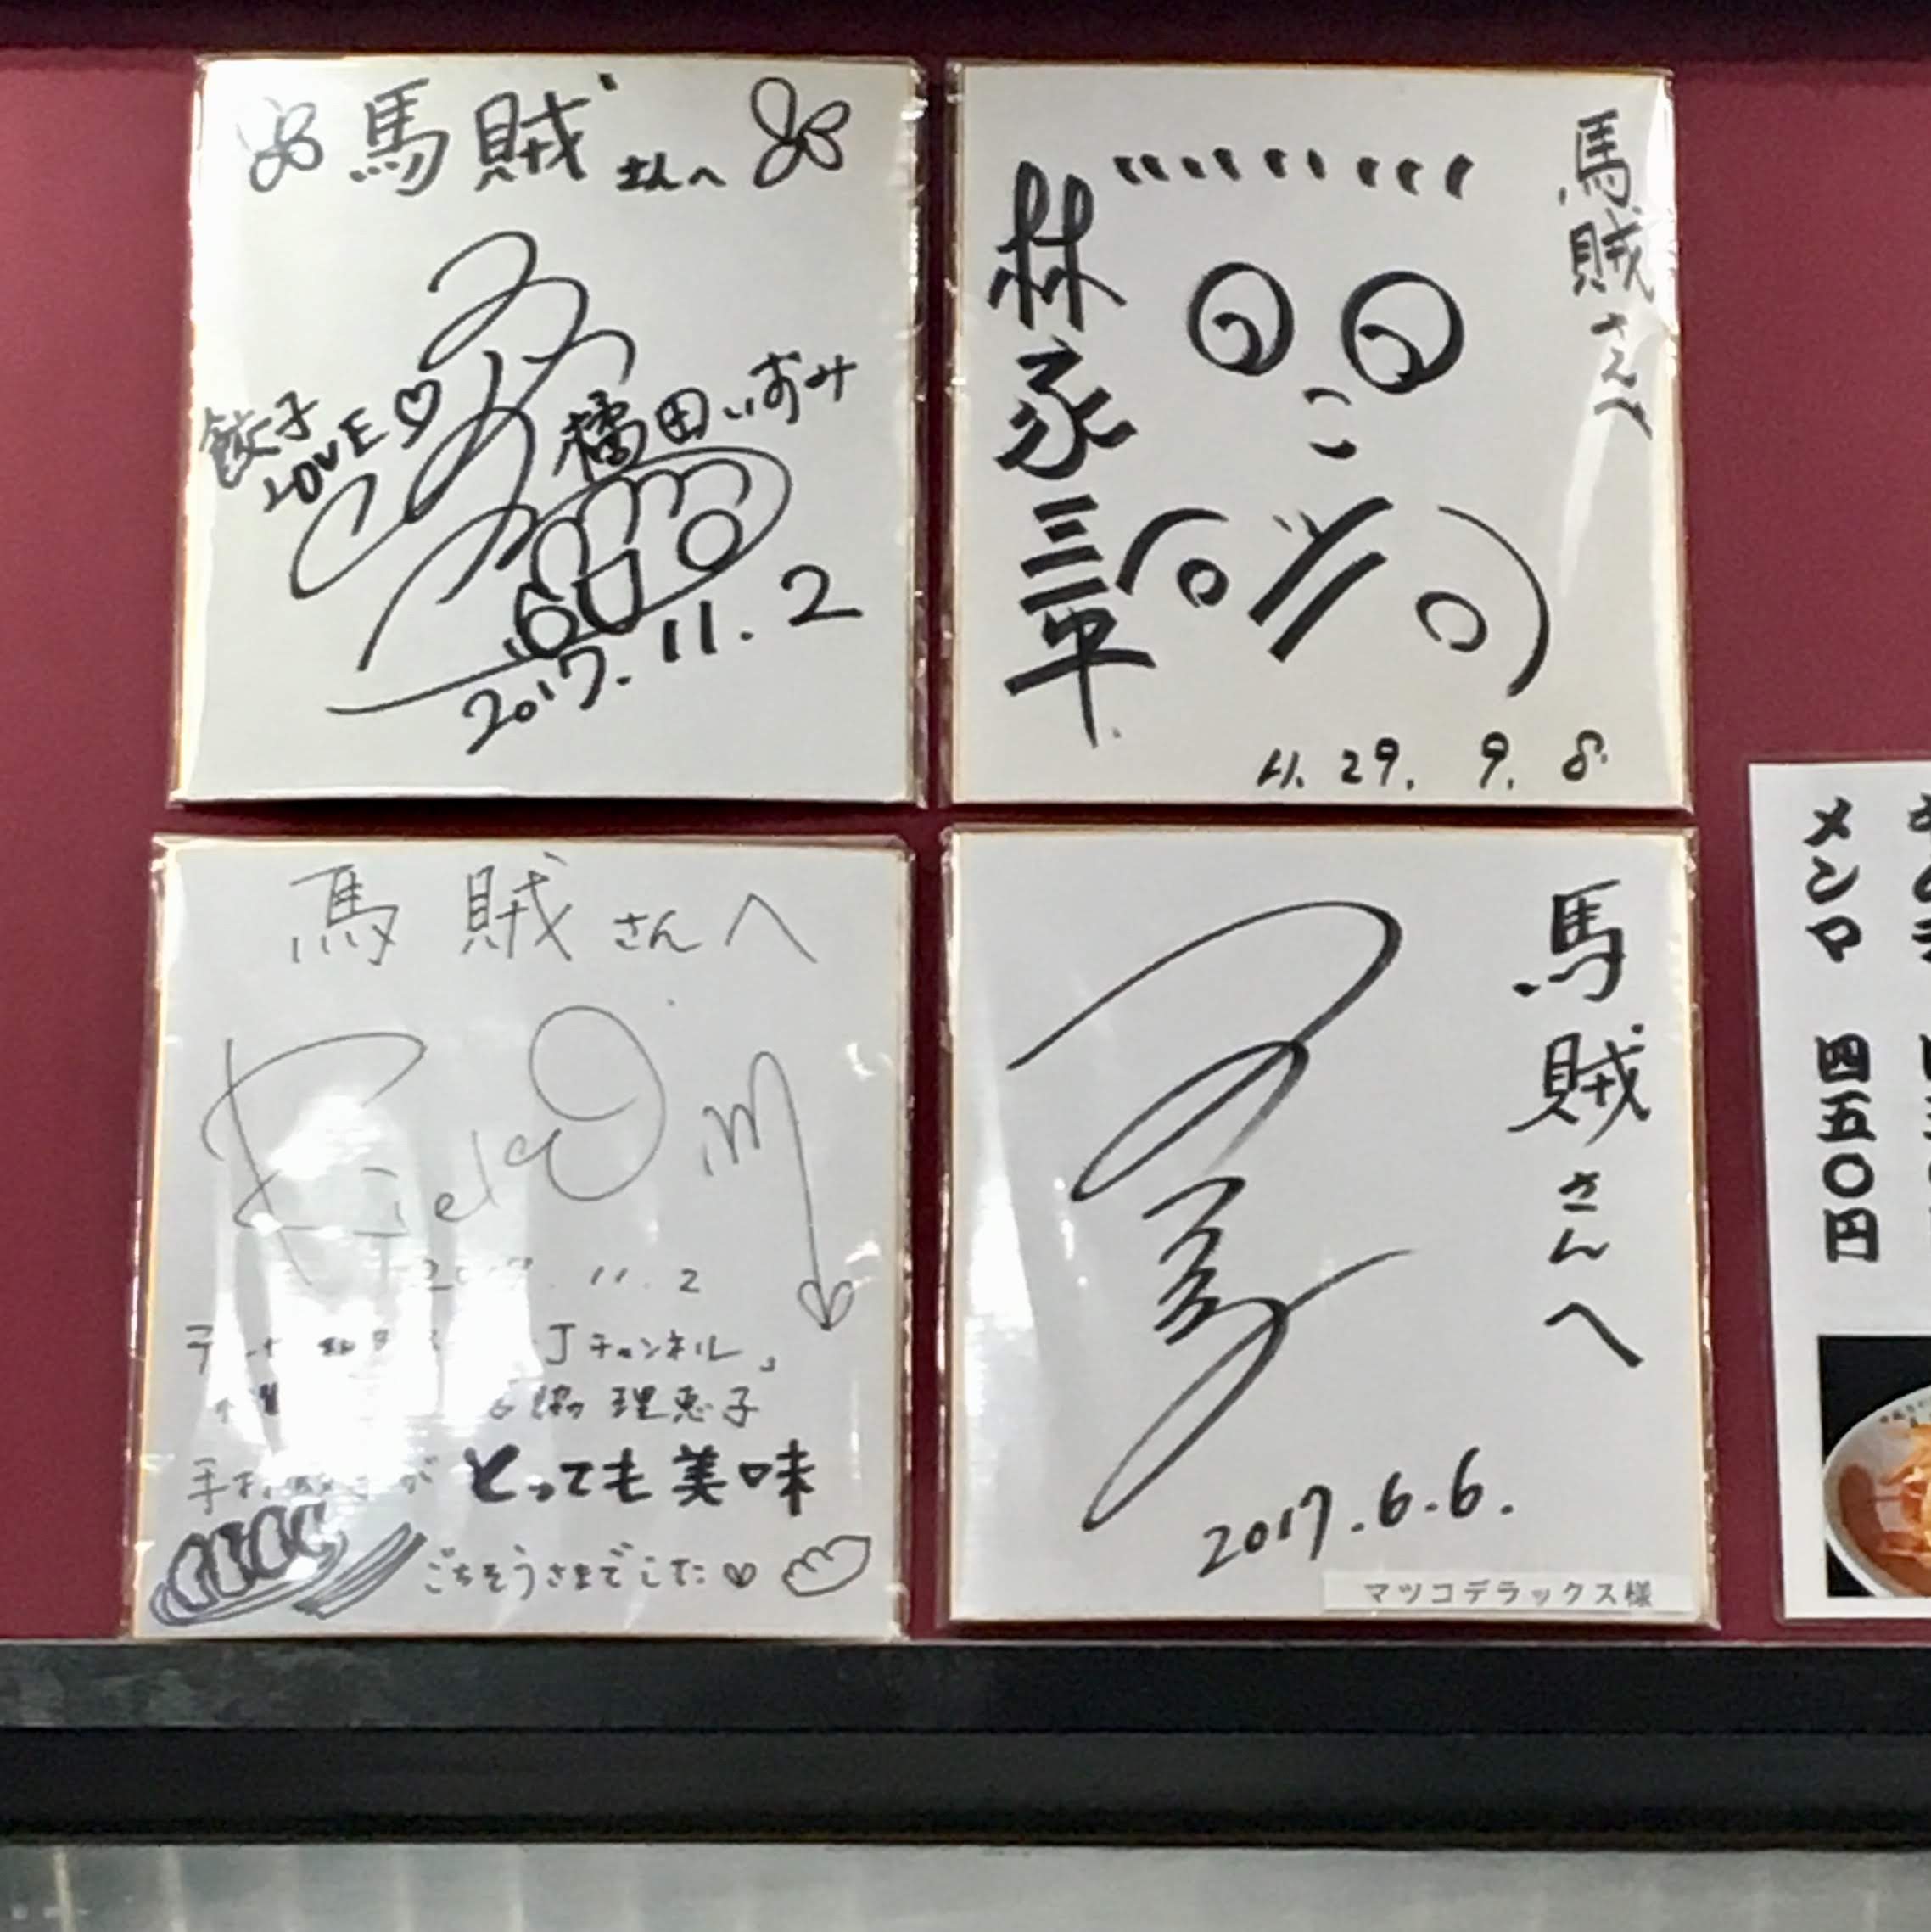 馬賊さんへ
餃子
LOVE♡
橘田いずみ
2017.11.2
馬賊さんへ
林家三平
H.29.9.8
馬賊さんへ
11.2
Jチャンネル」
理恵子
とっても美味
ごちそうさまでした♡
馬賊さんへ
2017.6.6.
マツコデラックス様
メンマ 四五〇円